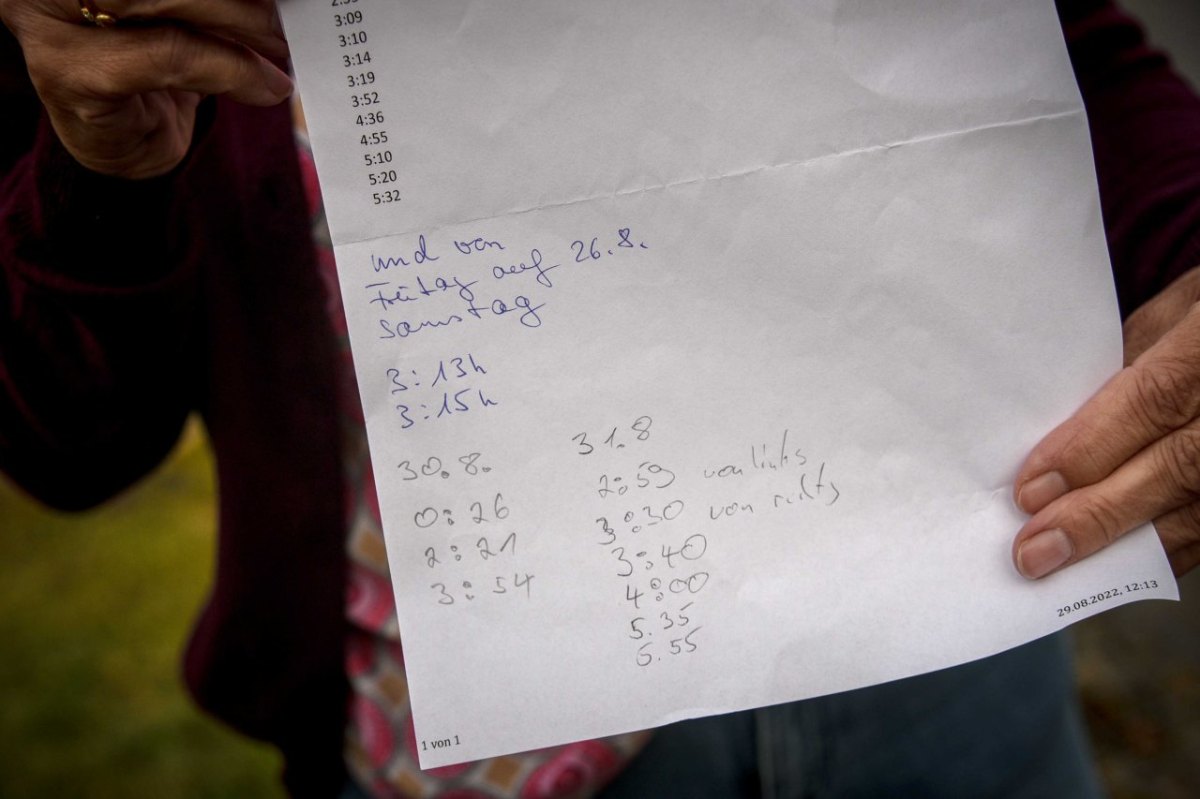 3:09
3:10
3:14
3:19
3:52
4:36
4:55
5:10
5:20
5:32
und von
Freitag auf 26.8.
Samstag
3:13h
3:15h
30.8.
0:26
2:21
3:54
31.8
2:59 von links
3:30 von rechts
3:40
4:00
5.35
5.55
29.08.2022, 12:13
1 von 1